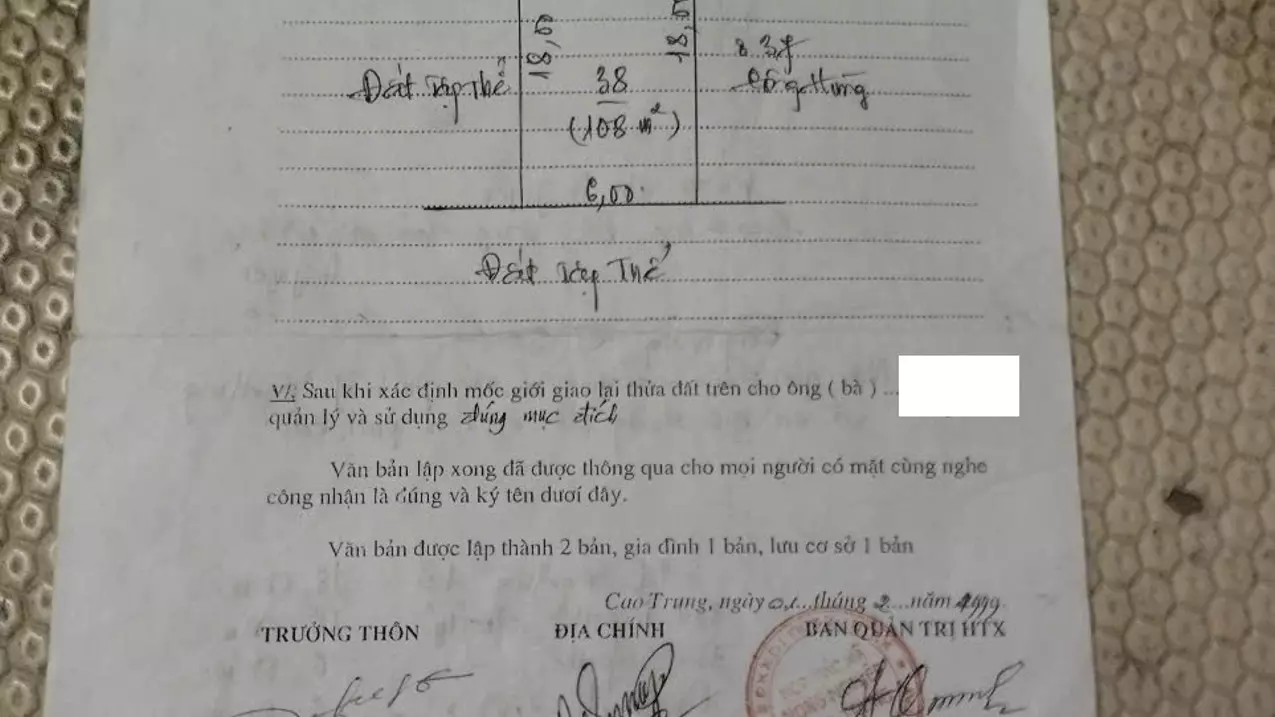 18,5 18,5
Đất Tập Thể 38 837
(108 m²) Hùng
6,00
Đất Tập Thể
VI: Sau khi xác định mốc giới giao lại thửa đất trên cho ông ( bà ) ...
quản lý và sử dụng đúng mục đích
Văn bản lập xong đã được thông qua cho mọi người có mặt cùng nghe
công nhận là đúng và ký tên dươí đây.
Văn bản được lập thành 2 bản, gia đình 1 bản, lưu cơ sở 1 bản
Cao Trung, ngày 01...tháng 2...năm 1999
TRƯỞNG THÔN ĐỊA CHÍNH BAN QUẢN TRỊ HTX